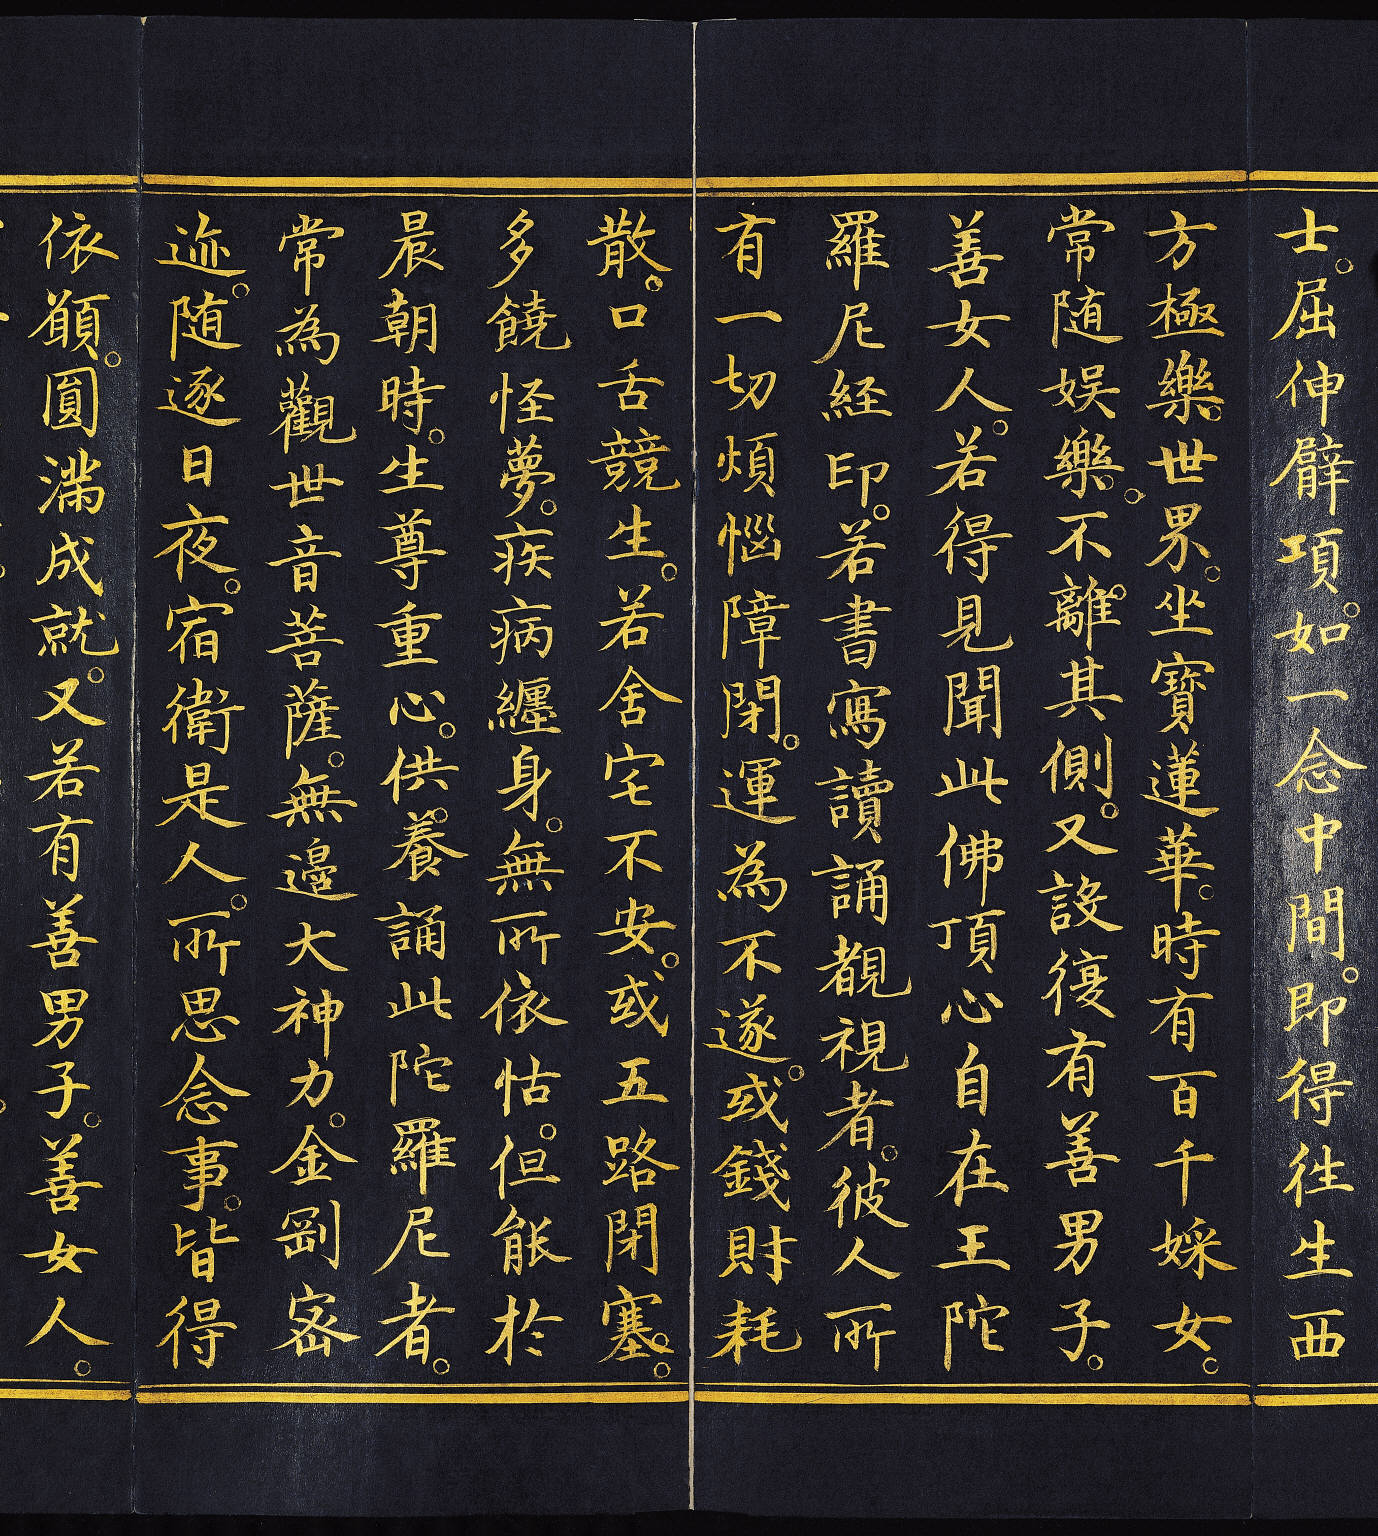 士。屈伸臂項。如一念中間。即得徃生西
方極樂。世界。坐寶蓮華。時有百千婇女。
常随娱樂。不離。其側。又設復有善男子。
善女人。若得見聞此佛頂心自在王陀
羅尼経印。若書寫讀誦覩視者。彼人所
有一切煩惱障閉。運為不遂。或錢財耗
散。口舌競生。若舍宅不安。或五路閉塞。
多饒怪夢。疾病纏身。無所依怙。但能於
晨朝時。生尊重心。供養。誦此陀羅尼者。
常為觀世音菩薩。無邊大神力。金剛宻
迹。随逐日夜。宿衛是人。所思念事。皆得
依願。圓滿成就。又若有善男子。善女人。